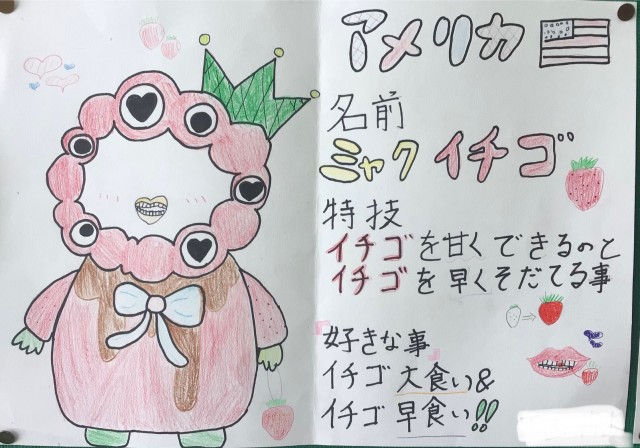 アメリカ
名前
ミャク イチゴ
特技
イチゴを甘くできるのと
イチゴを早くそだてる事
好きな事
イチゴ大食い&
イチゴ早食い!!